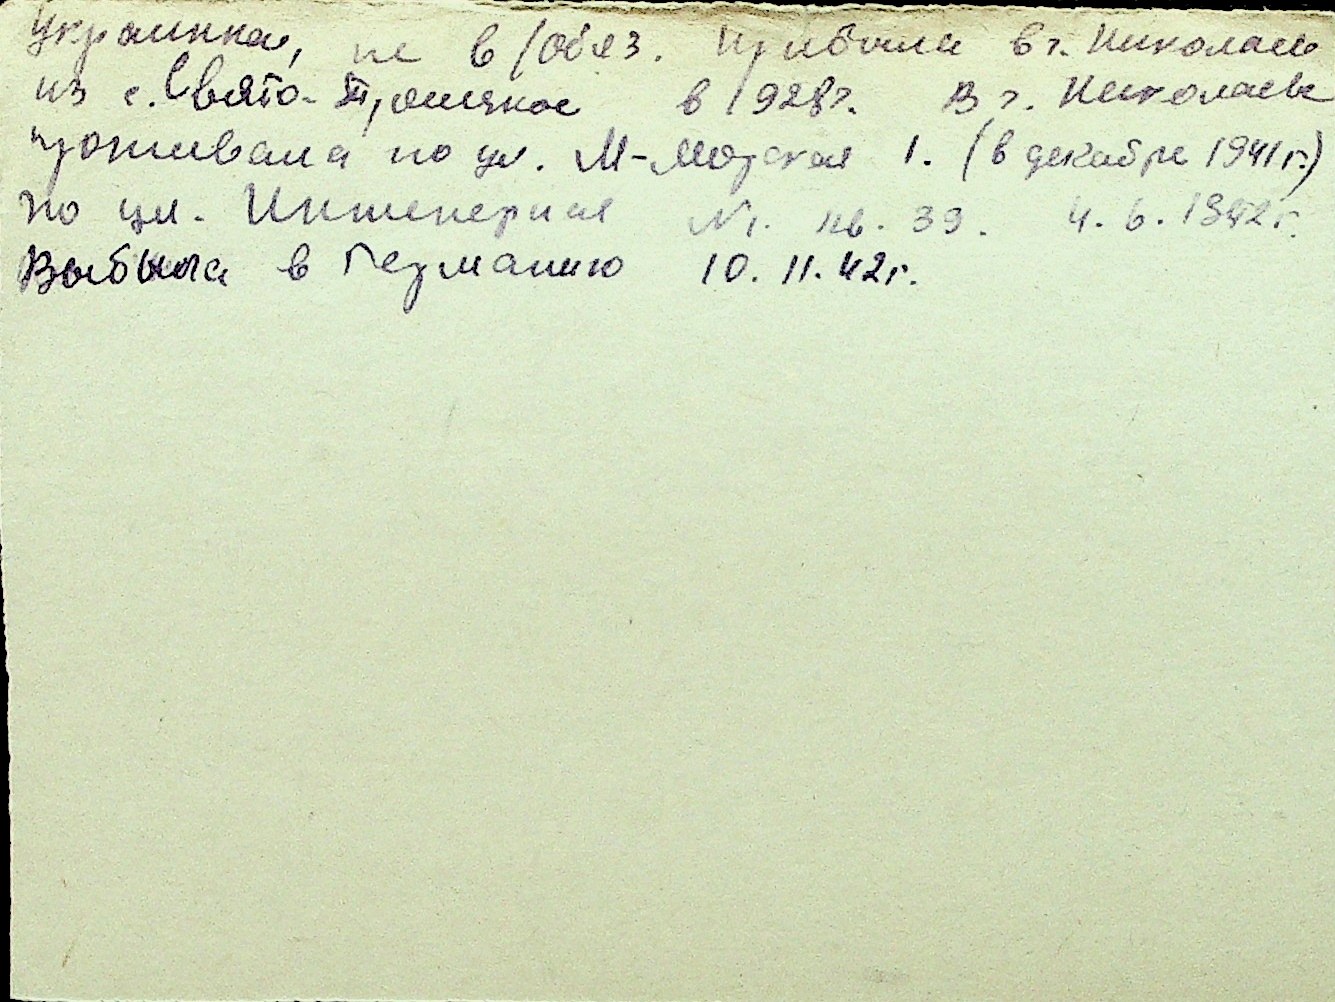 Украинка, не в/обяз. Прибыла в г. Николаев
из с. Свято-Троицкое в 1928г. В г. Николаеве
проживала по ул. М-Морская 1. (в декабре 1941г.)
по ул. Инженерная №1. кв. 39. 4. 6. 1942г.
Выбыла в Германию 10. 11. 42г.